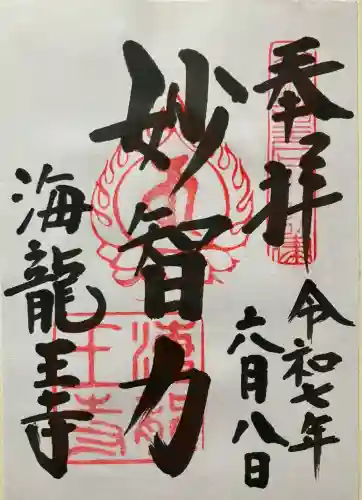 奉拝
令和七年
六月八日
妙智力
海龍王寺
海龍
王寺